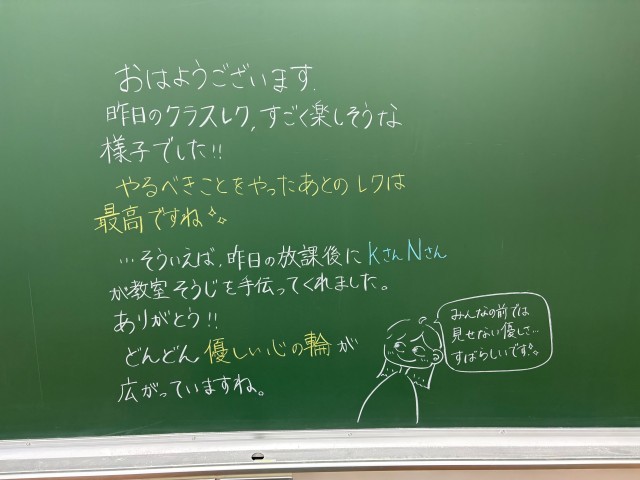 おはようございます.
昨日のクラスレク,すごく楽しそうな
様子でした!!
やるべきことをやったあとのレクは
最高ですね
…そういえば,昨日の放課後にkさんNさん
が教室そうじを手伝ってくれました。
ありがとう!!
どんどん優しい心の輪が
広がっていますね。
みんなの前では
見せない優しさ…
すばらしいです